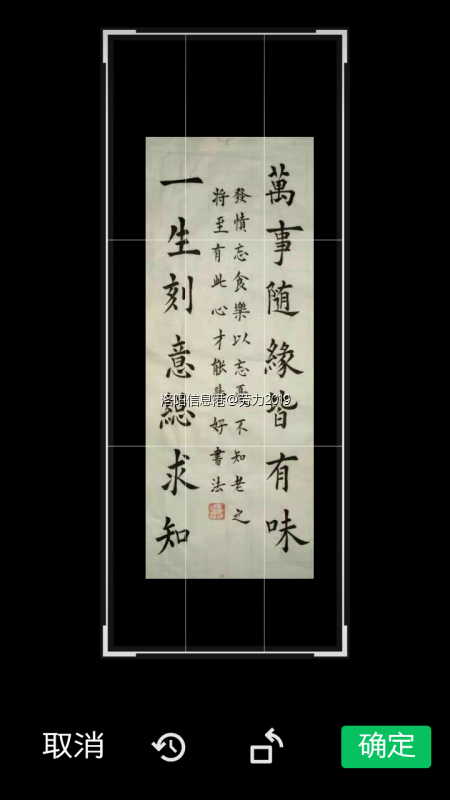 萬事随緣皆有味
發憤忘食樂以忘憂不知老之
将至有此心才能好書法
一生刻意総求知
洛阳信息港@劳力2019
取消
确定